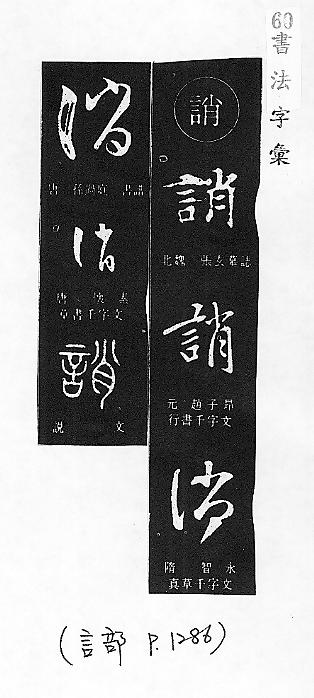 60書法字彙
誚
誚
北魏 張玄墓誌
誚
元 趙子昂
行書千字文
誚
隋 智永
真草千字文
誚
唐 孫過庭 書譜
誚
唐 懷素
草書千字文
誚
說文
(言部 P.1286)